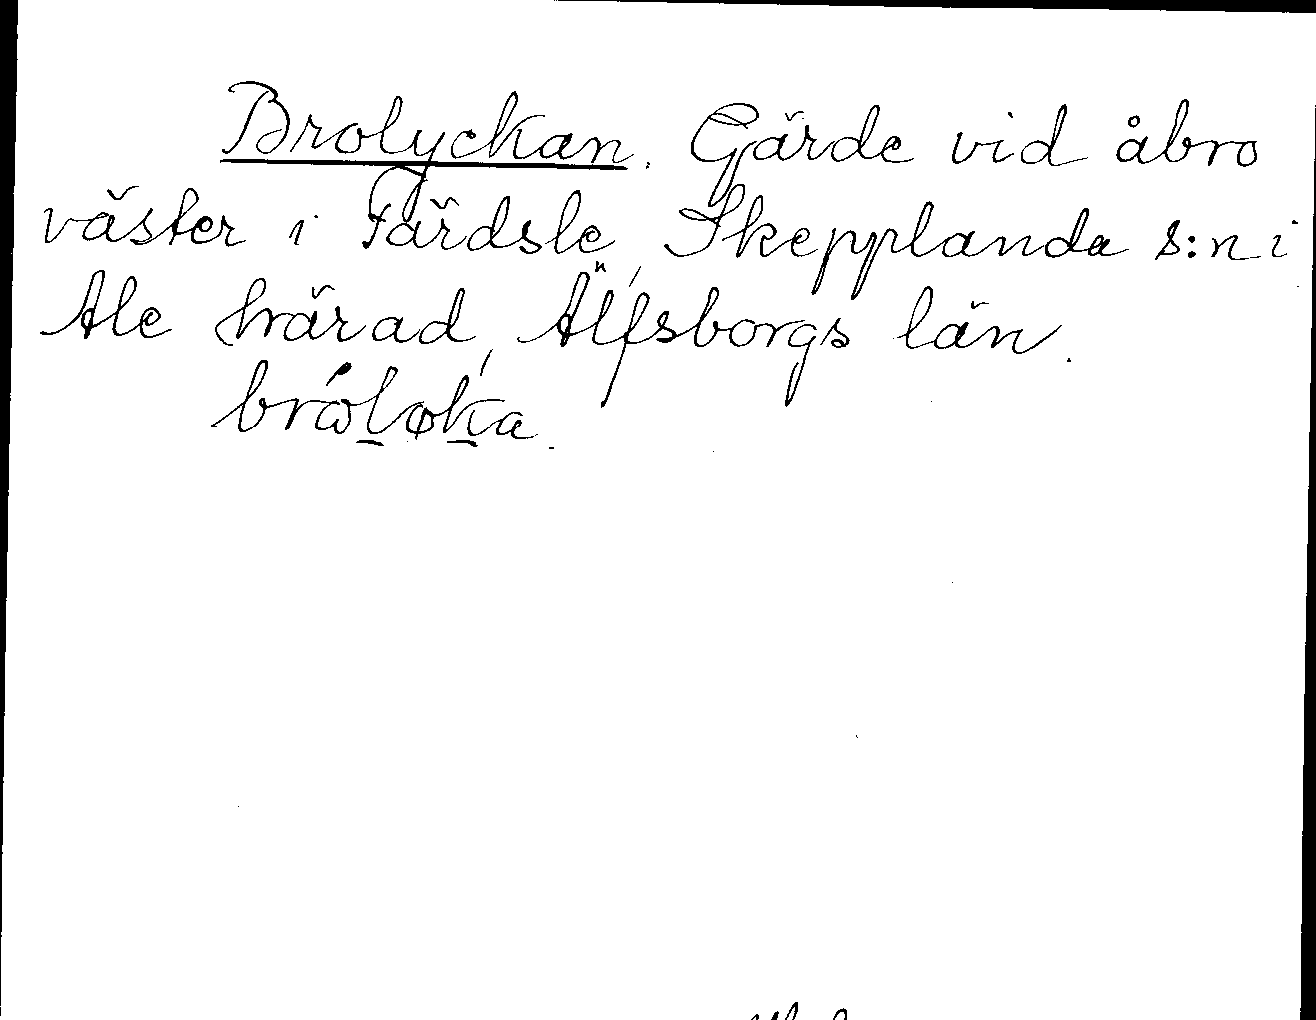 Brolyckan. Gärde vid åbro
väster i Färdsle, Skepplanda s:n i
Ale härad, Älfsborgs län.